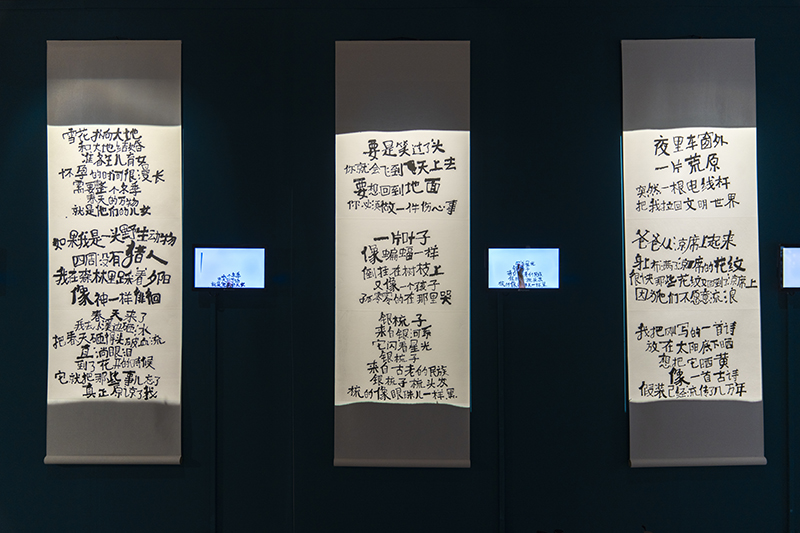 雪花扑向大地
和大地结婚
准备生儿育女
怀孕的时间很漫长
需要整个冬季
春天的万物
就是他们的儿女
如果我是一头野生动物
四周没有猎人
我在森林里踩着夕阳
像神一样徘徊
春天来了
我去小溪边砸冰
把春天砸得头破血流
直淌眼泪
到了花开的时候
它就把那些事儿忘了
真正原谅了我
要是笑过了头
你就会飞到天上去
要想回到地面
你必须做一件伤心事
一片叶子
像蝙蝠一样
倒挂在树枝上
又像一个孩子
孤零零的在那里哭
银梳子
来自银河系
它闪着星光
银梳子
来自古老的民族
银梳子梳头发
梳的像眼珠儿一样黑
夜里车窗外
一片荒原
突然一根电线杆
把我拉回文明世界
爸爸从凉席上起来
身上布满了凉席的花纹
很快那些花纹又回到了凉席上
因为他们不愿意流浪
我把刚写的一首诗
放在太阳底下晒
想把它晒黄
像一首古诗
假装已经流传了几万年